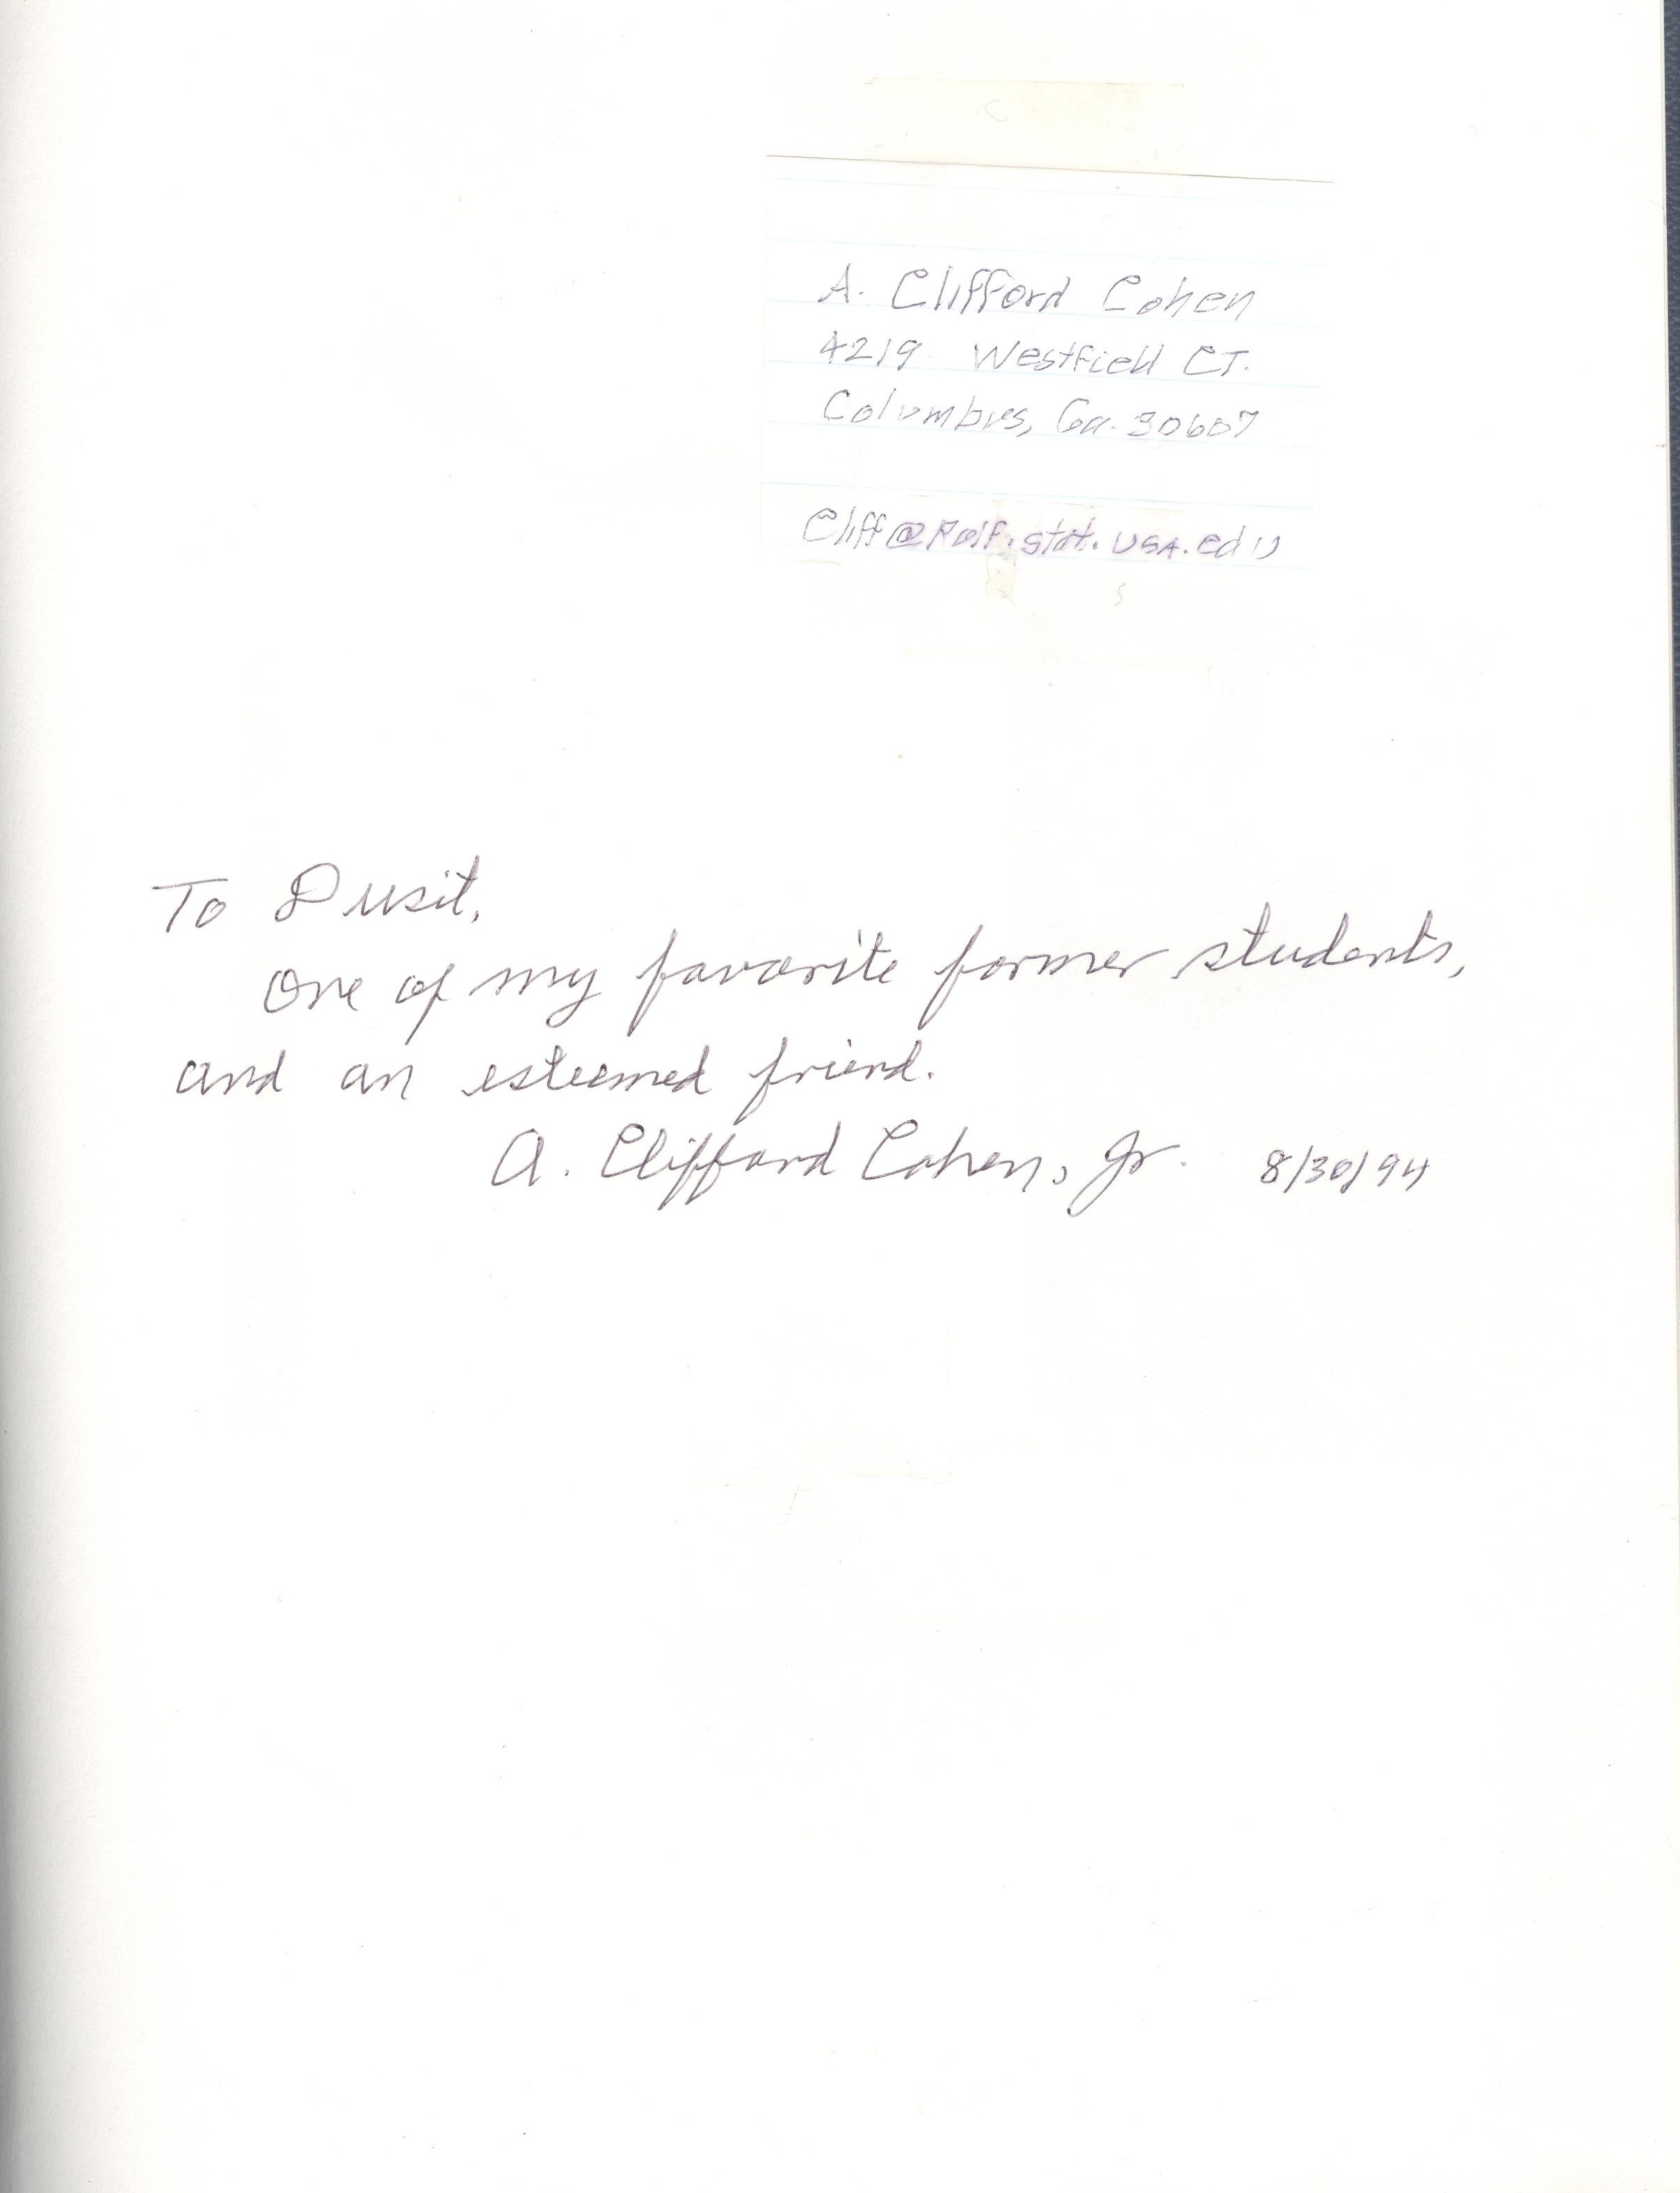 A. Clifford Cohen
4219 Westfield CT.
Columbus, Ga. 30607
Cliff@Rolf.stat.USA.edu
To Dusit,
One of my favorite former students,
and an esteemed friend.
A. Clifford Cohen, Jr. 8/30/94